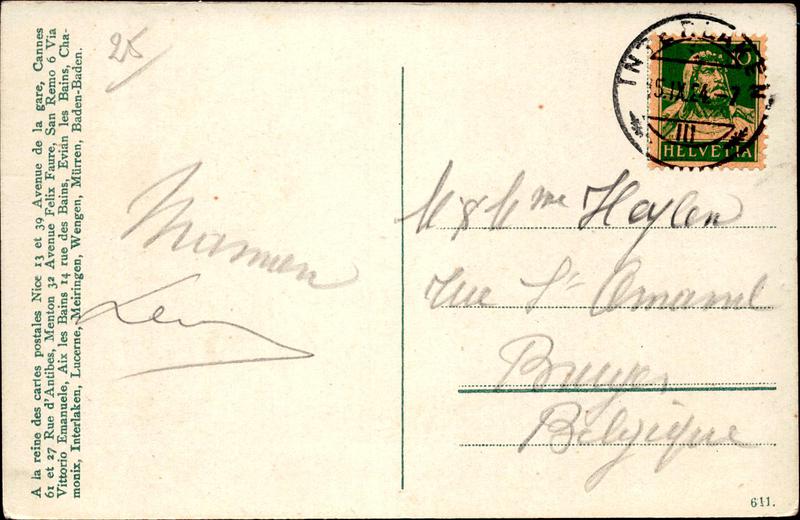 A la reine des cartes postales Nice 13 et 39 Avenue de la gare, Cannes
61 et 27 Rue d'Antibes, Menton 32 Avenue Felix Faure, San Remo 6 Via
Vittorio Emanuele, Aix les Bains 14 rue des Bains, Evian les Bains, Cha-
monix, Interlaken, Lucerne, Meiringen, Wengen, Mürren, Baden-Baden.
25
INTERLAKEN
5.IX.24.-7
III
10
HELVETIA
M & Mme Heylen
Rue St Amand
Bruges
Belgique
611.